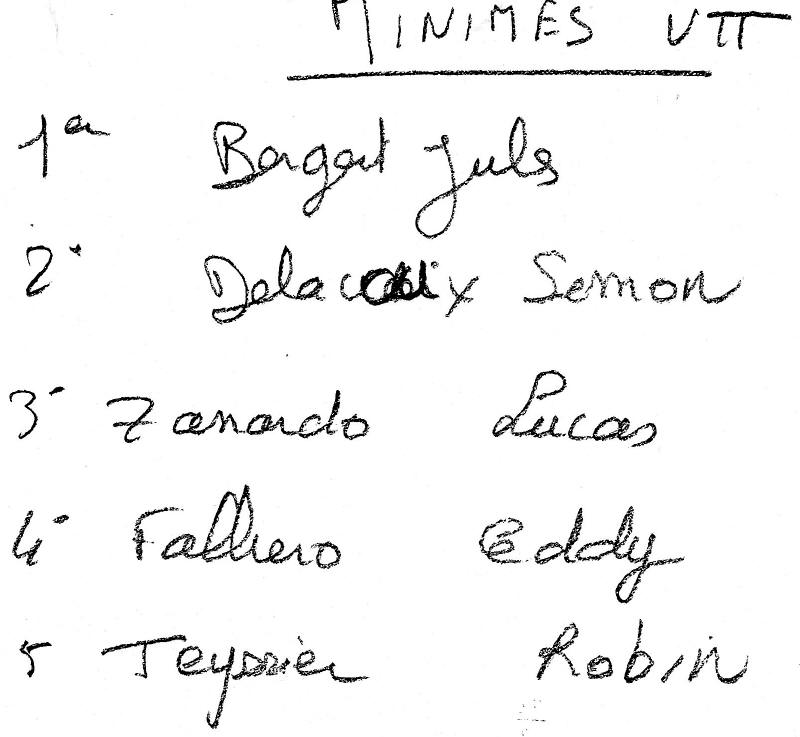 MINIMES VTT
1er Bergert Jules
2e Delacroix Semon
3e Zanardo Lucas
4e Eddy
5 Teyssier Robin